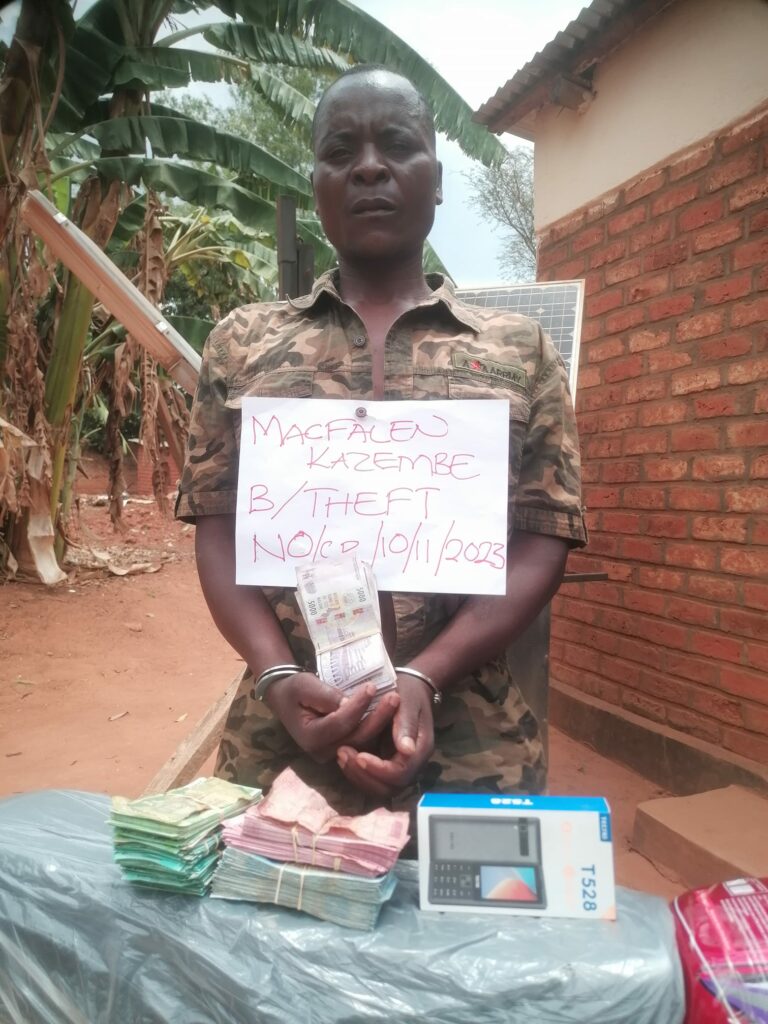 MACFALEN
KAZEMBE
B/THEFT
NO/CR/10/11/2023
5000
5000
T528
TECNO
T528